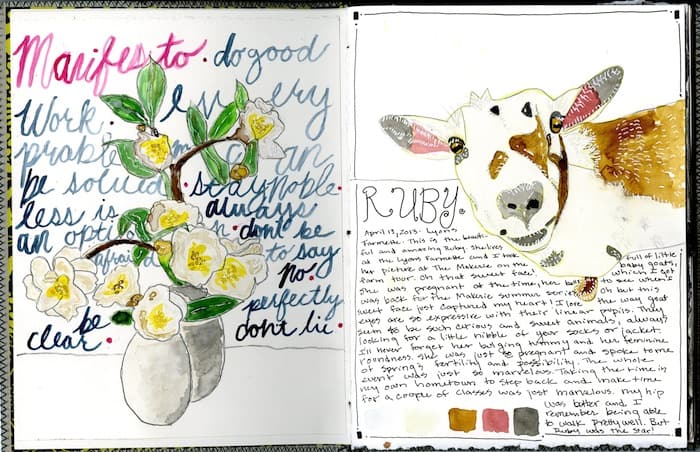 Manifesto. do good
Work. every
problem can
be solved. stay noble.
less is always
an option. don't be
afraid to say
no.
perfectly
be clear. don't lie.
RUBY.
April 13, 2013. Lyons
Farmette. This is the beauti
ful and amazing Ruby. She lives
at the Lyons Farmette and I took
her picture at The Makerie on the
farm tour. Oh that sweet face!
full of little
baby goats,
She was pregnant at the time, her belly
which I got
to see when I
was back for the Makerie summer series.
Oh but this
sweet face just captured my heart! I love the way goat
eyes are so expressive with their linear pupils. They
seem to be such curious and sweet animals, always
looking for a little nibble of your socks or jacket.
I'll never forget her bulging tummy and her feminine
roundness. She was just so pregnant and spoke to me
of spring's fertility and possibility. The whole
event was just so marvelous. Taking the time in
my own hometown to step back and make time
for a couple of classes was just marvelous. My hip
was better and I
remember being able
to walk pretty well. But
Ruby was the star!